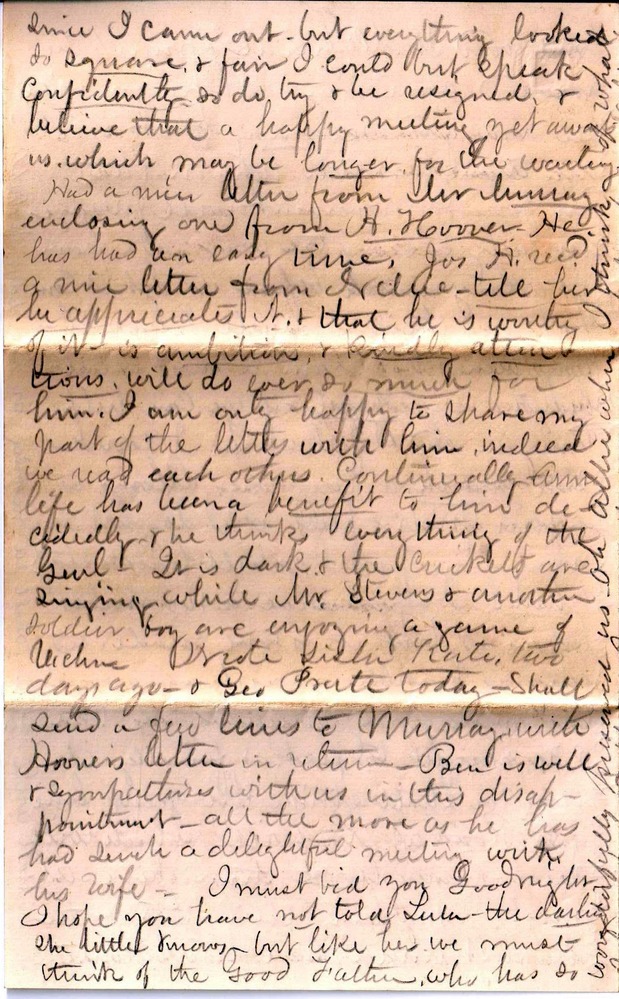 since I came out - but everything looked
so square, & fair I could but speak
Confidently so do, try & be resigned, &
believe that a happy meeting yet awaits
us. which may be longer, for the waiting.
Had a nice letter from Murray
enclosing one from H. Hoover. He
has had an easy time, Jos H. recd
a nice letter from - tell her
he appreciates it, & that he is worthy
of it - is ambitious, & kindly atten
tions. will do ever so much for
him. I am only happy to share my
part of the letters with him, indeed
we read each others. Continually Army
life has been a benefit to him de-
cidedly & he thinks everything of the
Genl - It is dark & the crickets are
singing, while Mr. Stevens & another
soldier boy are enjoying a game of
Wrote sister Kate, two
days ago - & Geo today - Shall
send a few lines to Murray, with
Hoovers letter in return - Ben is well
& sympathises with us in this disap-
pointment - all the more as he has
had such a delightful meeting with
his wife - I must bid you Goodnight
I hope you have not told Lulu - the darling
she little knows - but like her we must
think of the Good Father, who has so
wonderfully preserved us - Oh when I think of what